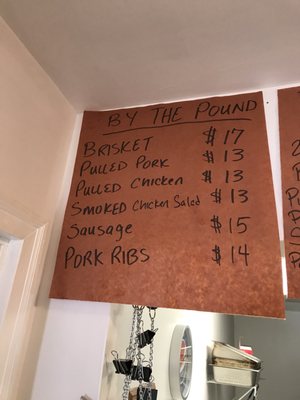 BY THE POUND
BRISKET $17
PULLED PORK $13
PULLED Chicken $13
SMOKED Chicken Salad $13
Sausage $15
PORK RIBS $14